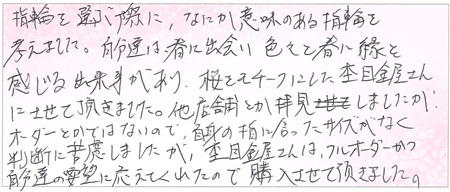 指輪を選ぶ際に，なにか意味のある指輪を
考えました。自分達は春に出会い色々と春に縁を
感じる出来事があり、桜をモチーフにした杢目金屋さん
にさせて頂きました。他店舗とか拝見しましたが、
オーダーとかではないので、自身の指に合ったサイズがなく
判断に苦慮しましたが、杢目金屋さんは、フルオーダーかつ
自分達の要望に応えてくれたので購入させて頂きました。